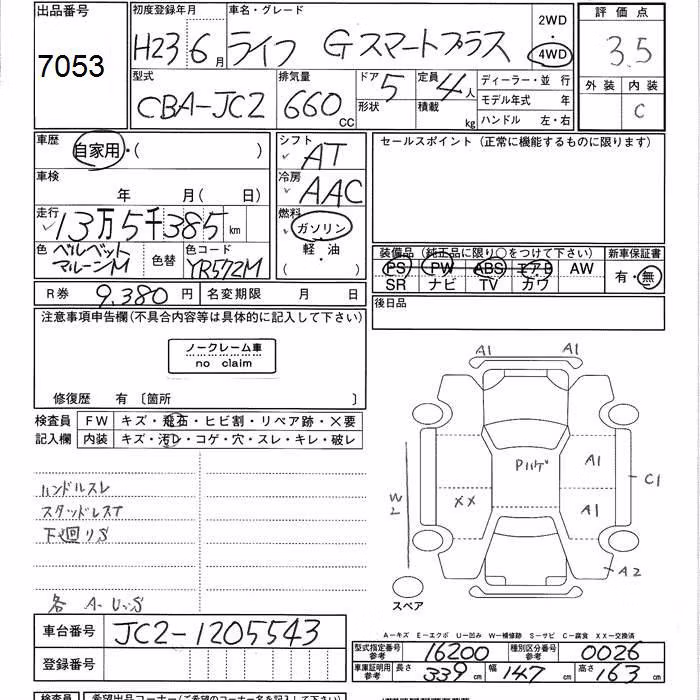 出品番号
7053
初度登録年月
H23 6月
車名・グレード
ライフ Gスマートプラス
2WD
4WD
評価点
3.5
外装 内装
C
型式
CBA-JC2
排気量
660 CC
ドア 5
形状
定員 4人
積載 kg
ディーラー・並 行
モデル年式 年
ハンドル 左・右
車歴
自家用・( )
車検
年 月( 日)
走行
13万5千385km
色 ベルベット
マルーンM
色替
色コード
YR572M
シフト
AT
冷房
AAC
燃料
ガソリン
・
軽・油
( )
セールスポイント(正常に機能するものに限ります)
装備品(純正品に限り○をつけて下さい)
PS PW ABS エアB AW
SR ナビ TV カワ
新車保証書
有・無
R券 9,380円
名変期限 月 日
後日品
注意事項申告欄(不具合内容等は具体的に記入して下さい)
ノークレーム車
no claim
修復歴 有〔箇所 〕
検査員
記入欄
FW キズ・飛石・ヒビ割・リペア跡・×要
内装 キズ・汚レ・コゲ・穴・スレ・キレ・破レ
ハンドルスレ
スタッドレスT
下廻りS
各 A・U・S
A1 A1
Pハゲ
A1
C1
W2
XX
A1
A2
スペア
車台番号
JC2-1205543
登録番号
A―キズ E―エクボ U―凹み W―補修跡 S―サビ C―腐食 XX―交換済
型式指定番号
参考
16200
種別区分番号
参考
0026
車庫証明用
参考
長さ 339cm
幅 147cm
高さ 163cm
検査員
希望出品コーナー(ご希望のコーナー名を記入して下さい)